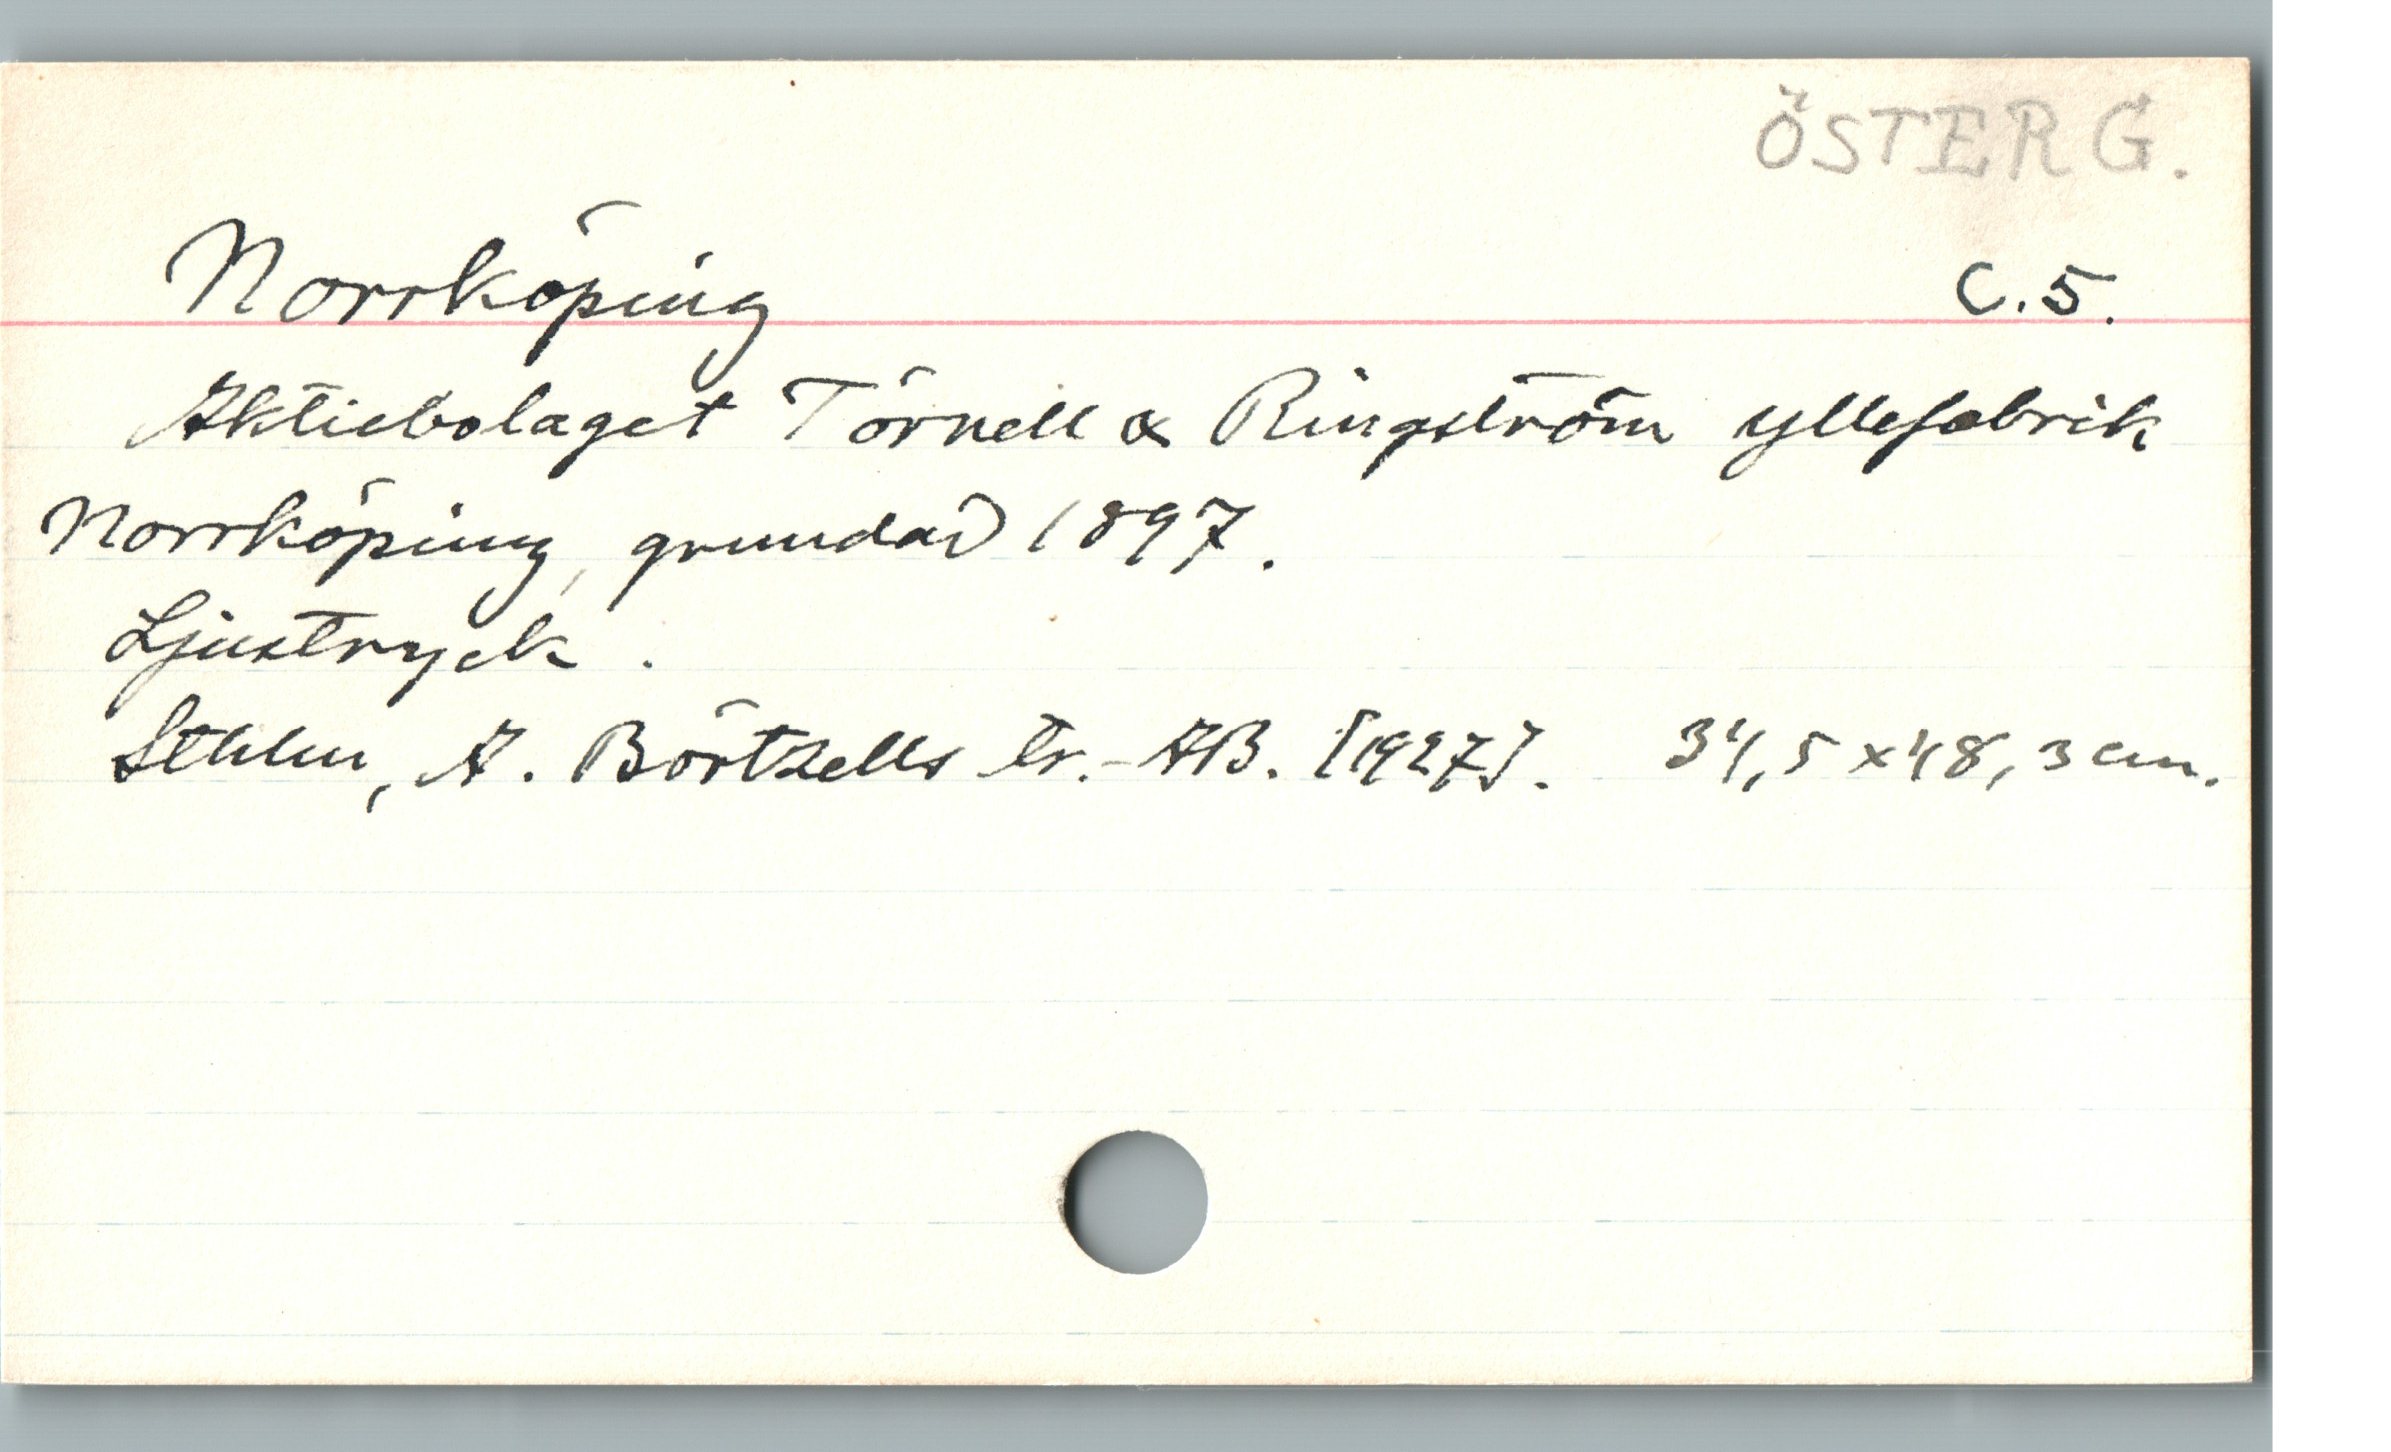 ÖSTERG.
Norrköping C.5.
Aktiebolaget Törnell & Ringström yllefabrik
Norrköping, grundad 1897.
Ljustryck.
Sthlm, A. Börtzells tr.-AB. [1927]. 34,5 x 48,3 cm.